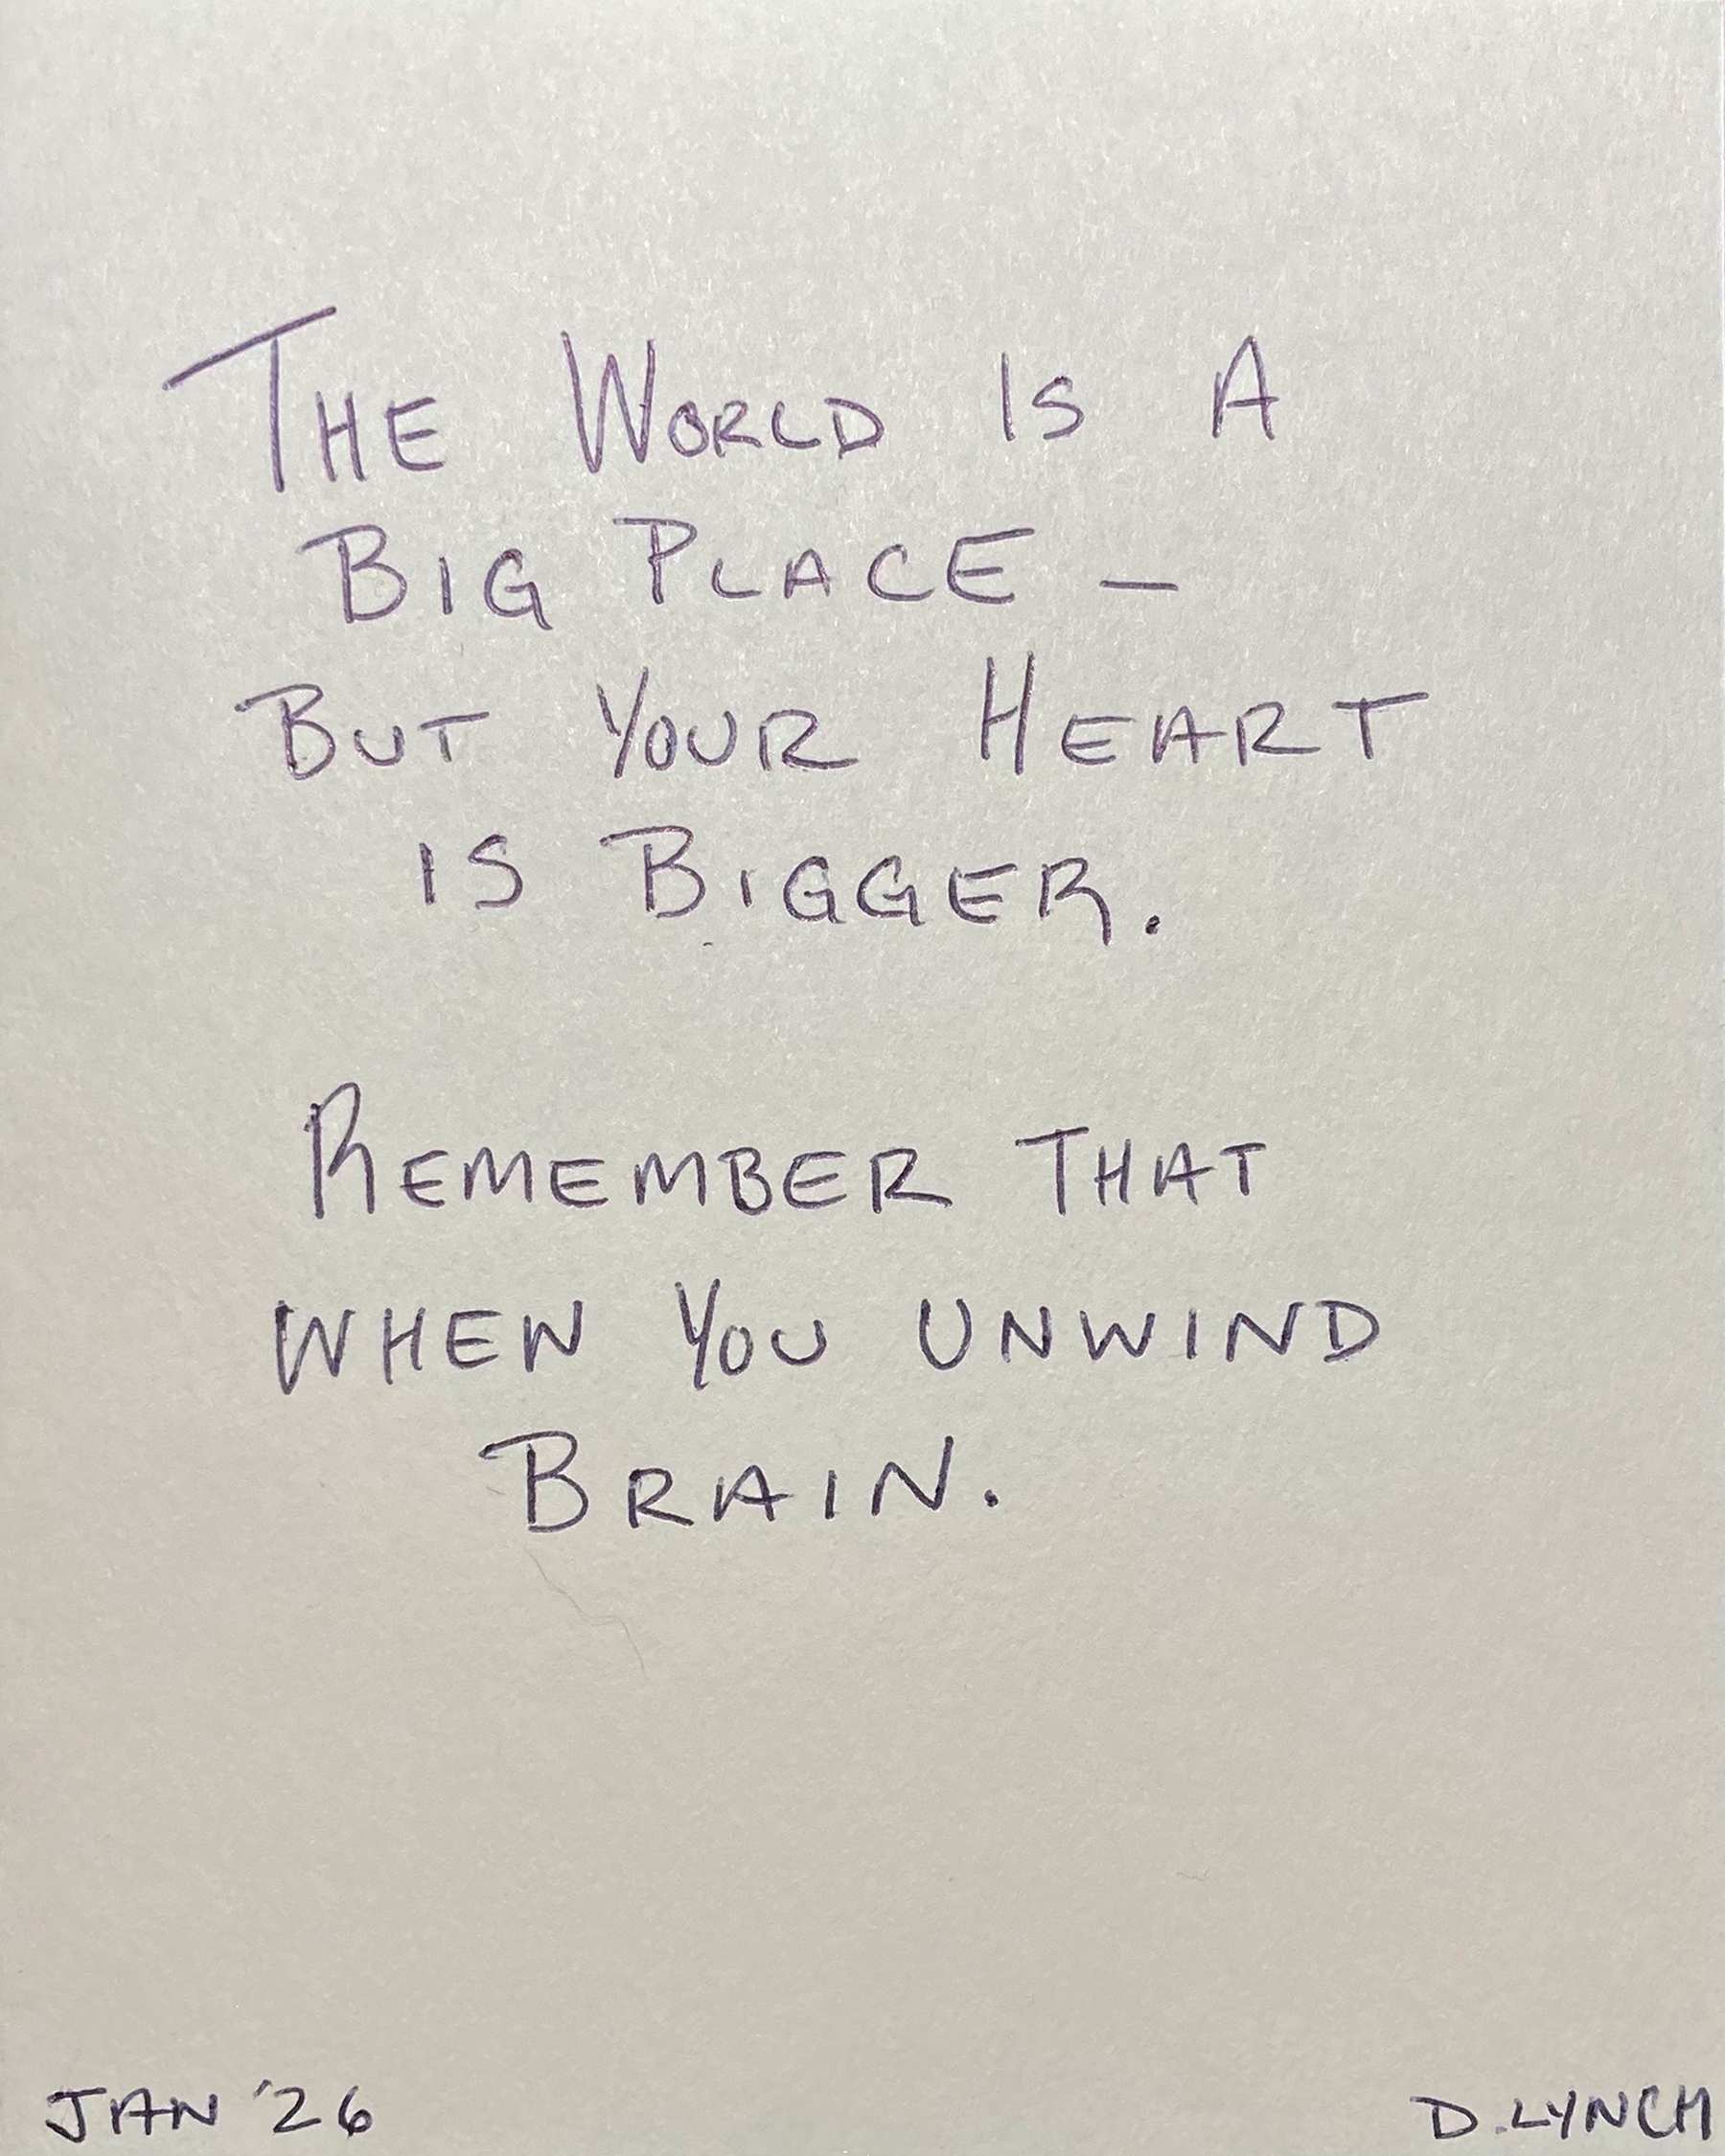 THE WORLD IS A
BIG PLACE –
BUT YOUR HEART
IS BIGGER.
REMEMBER THAT
WHEN YOU UNWIND
BRAIN.
JAN '26
D. LYNCH